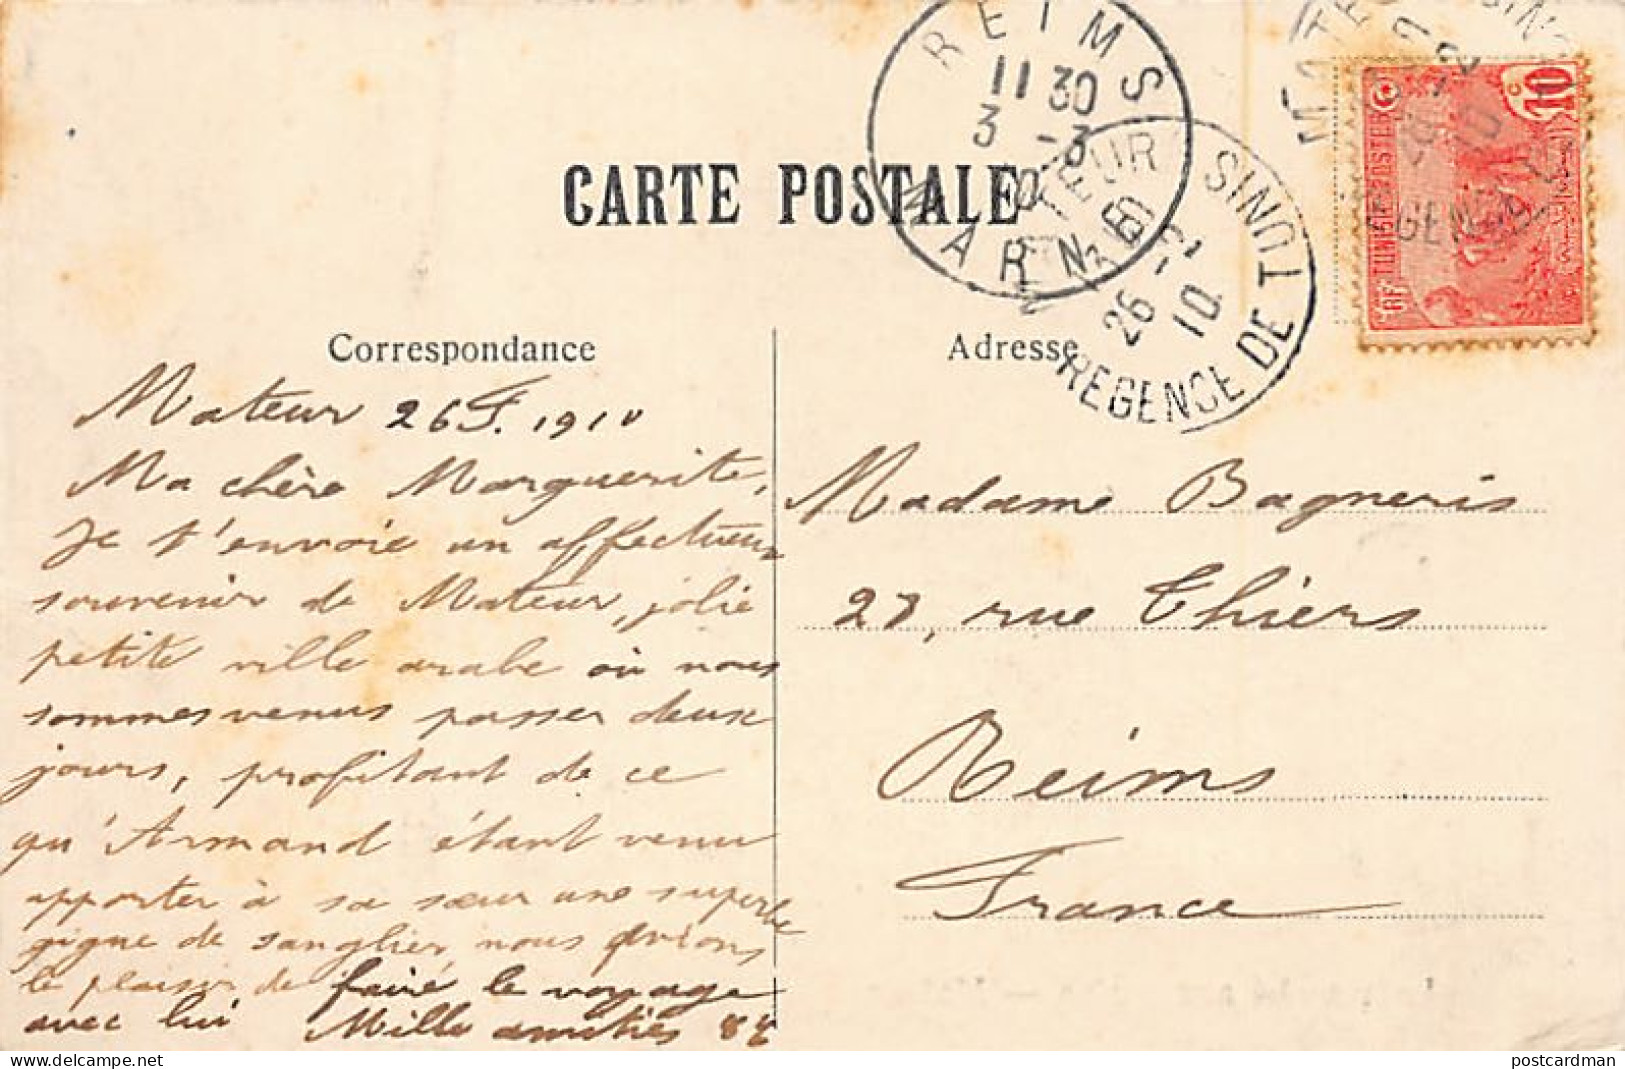 REIMS
11 30
3 -3
10
MARNE
MATEUR
26 -2
10
REGENCE DE TUNIS
10
c
RF TUNISIE POSTES
CARTE POSTALE
Correspondance
Mateur 26 F. 1910
Ma chère Marguerite,
Je t'envoie un affectueux
souvenir de Mateur, jolie
petite ville arabe où nous
sommes venus passer deux
jours, profitant de ce
qu'Armand étant venu
apporter à sa sœur une superbe
gigue de sanglier, nous avions
le plaisir de faire le voyage
avec lui Mille amitiés
Adresse
Madame Bagneris
27, rue Thiers
Reims
France
postcardman